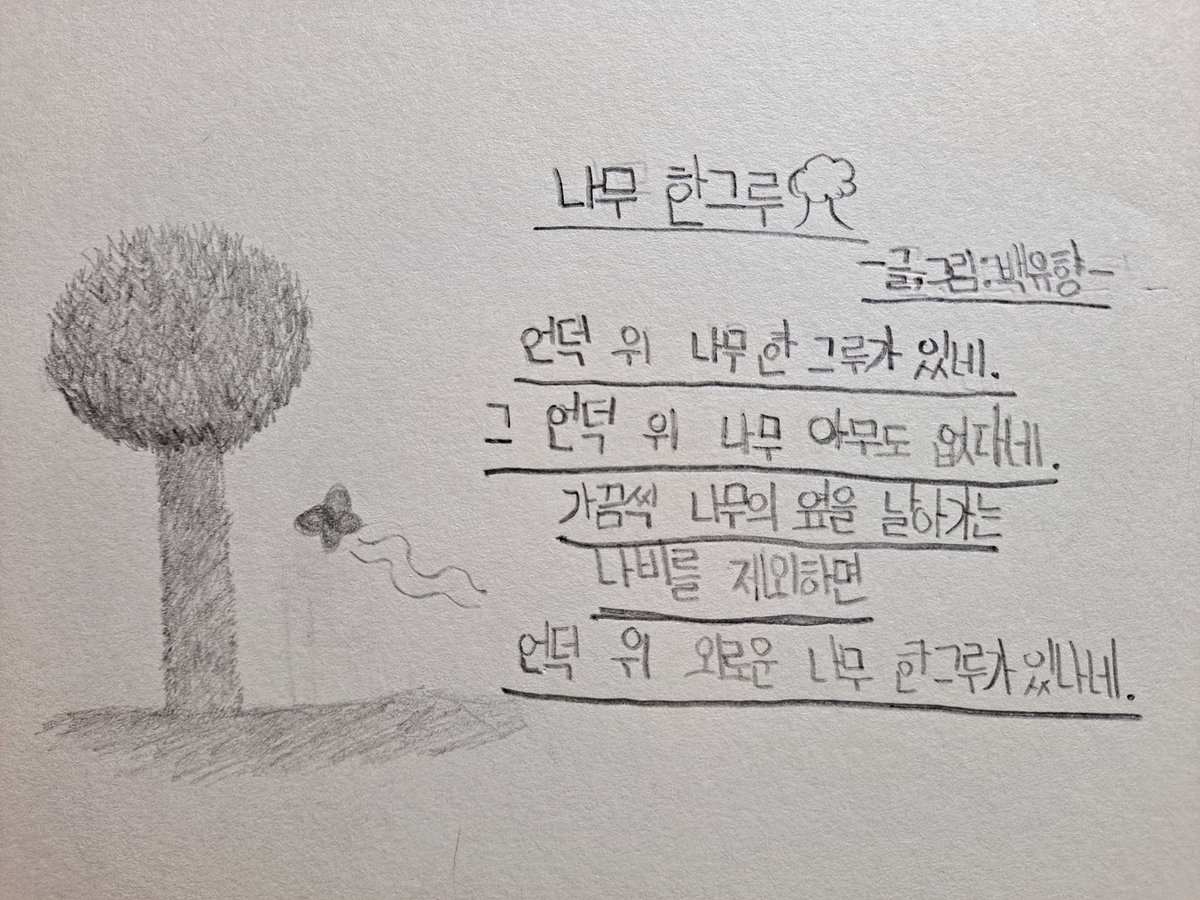 나무 한그루
-글,그림:백유향-
언덕 위 나무 한 그루가 있네.
그 언덕 위 나무 아무도 없다네.
가끔씩 나무의 옆을 날아가는
나비를 제외하면
언덕 위 외로운 나무 한그루가 있나네.